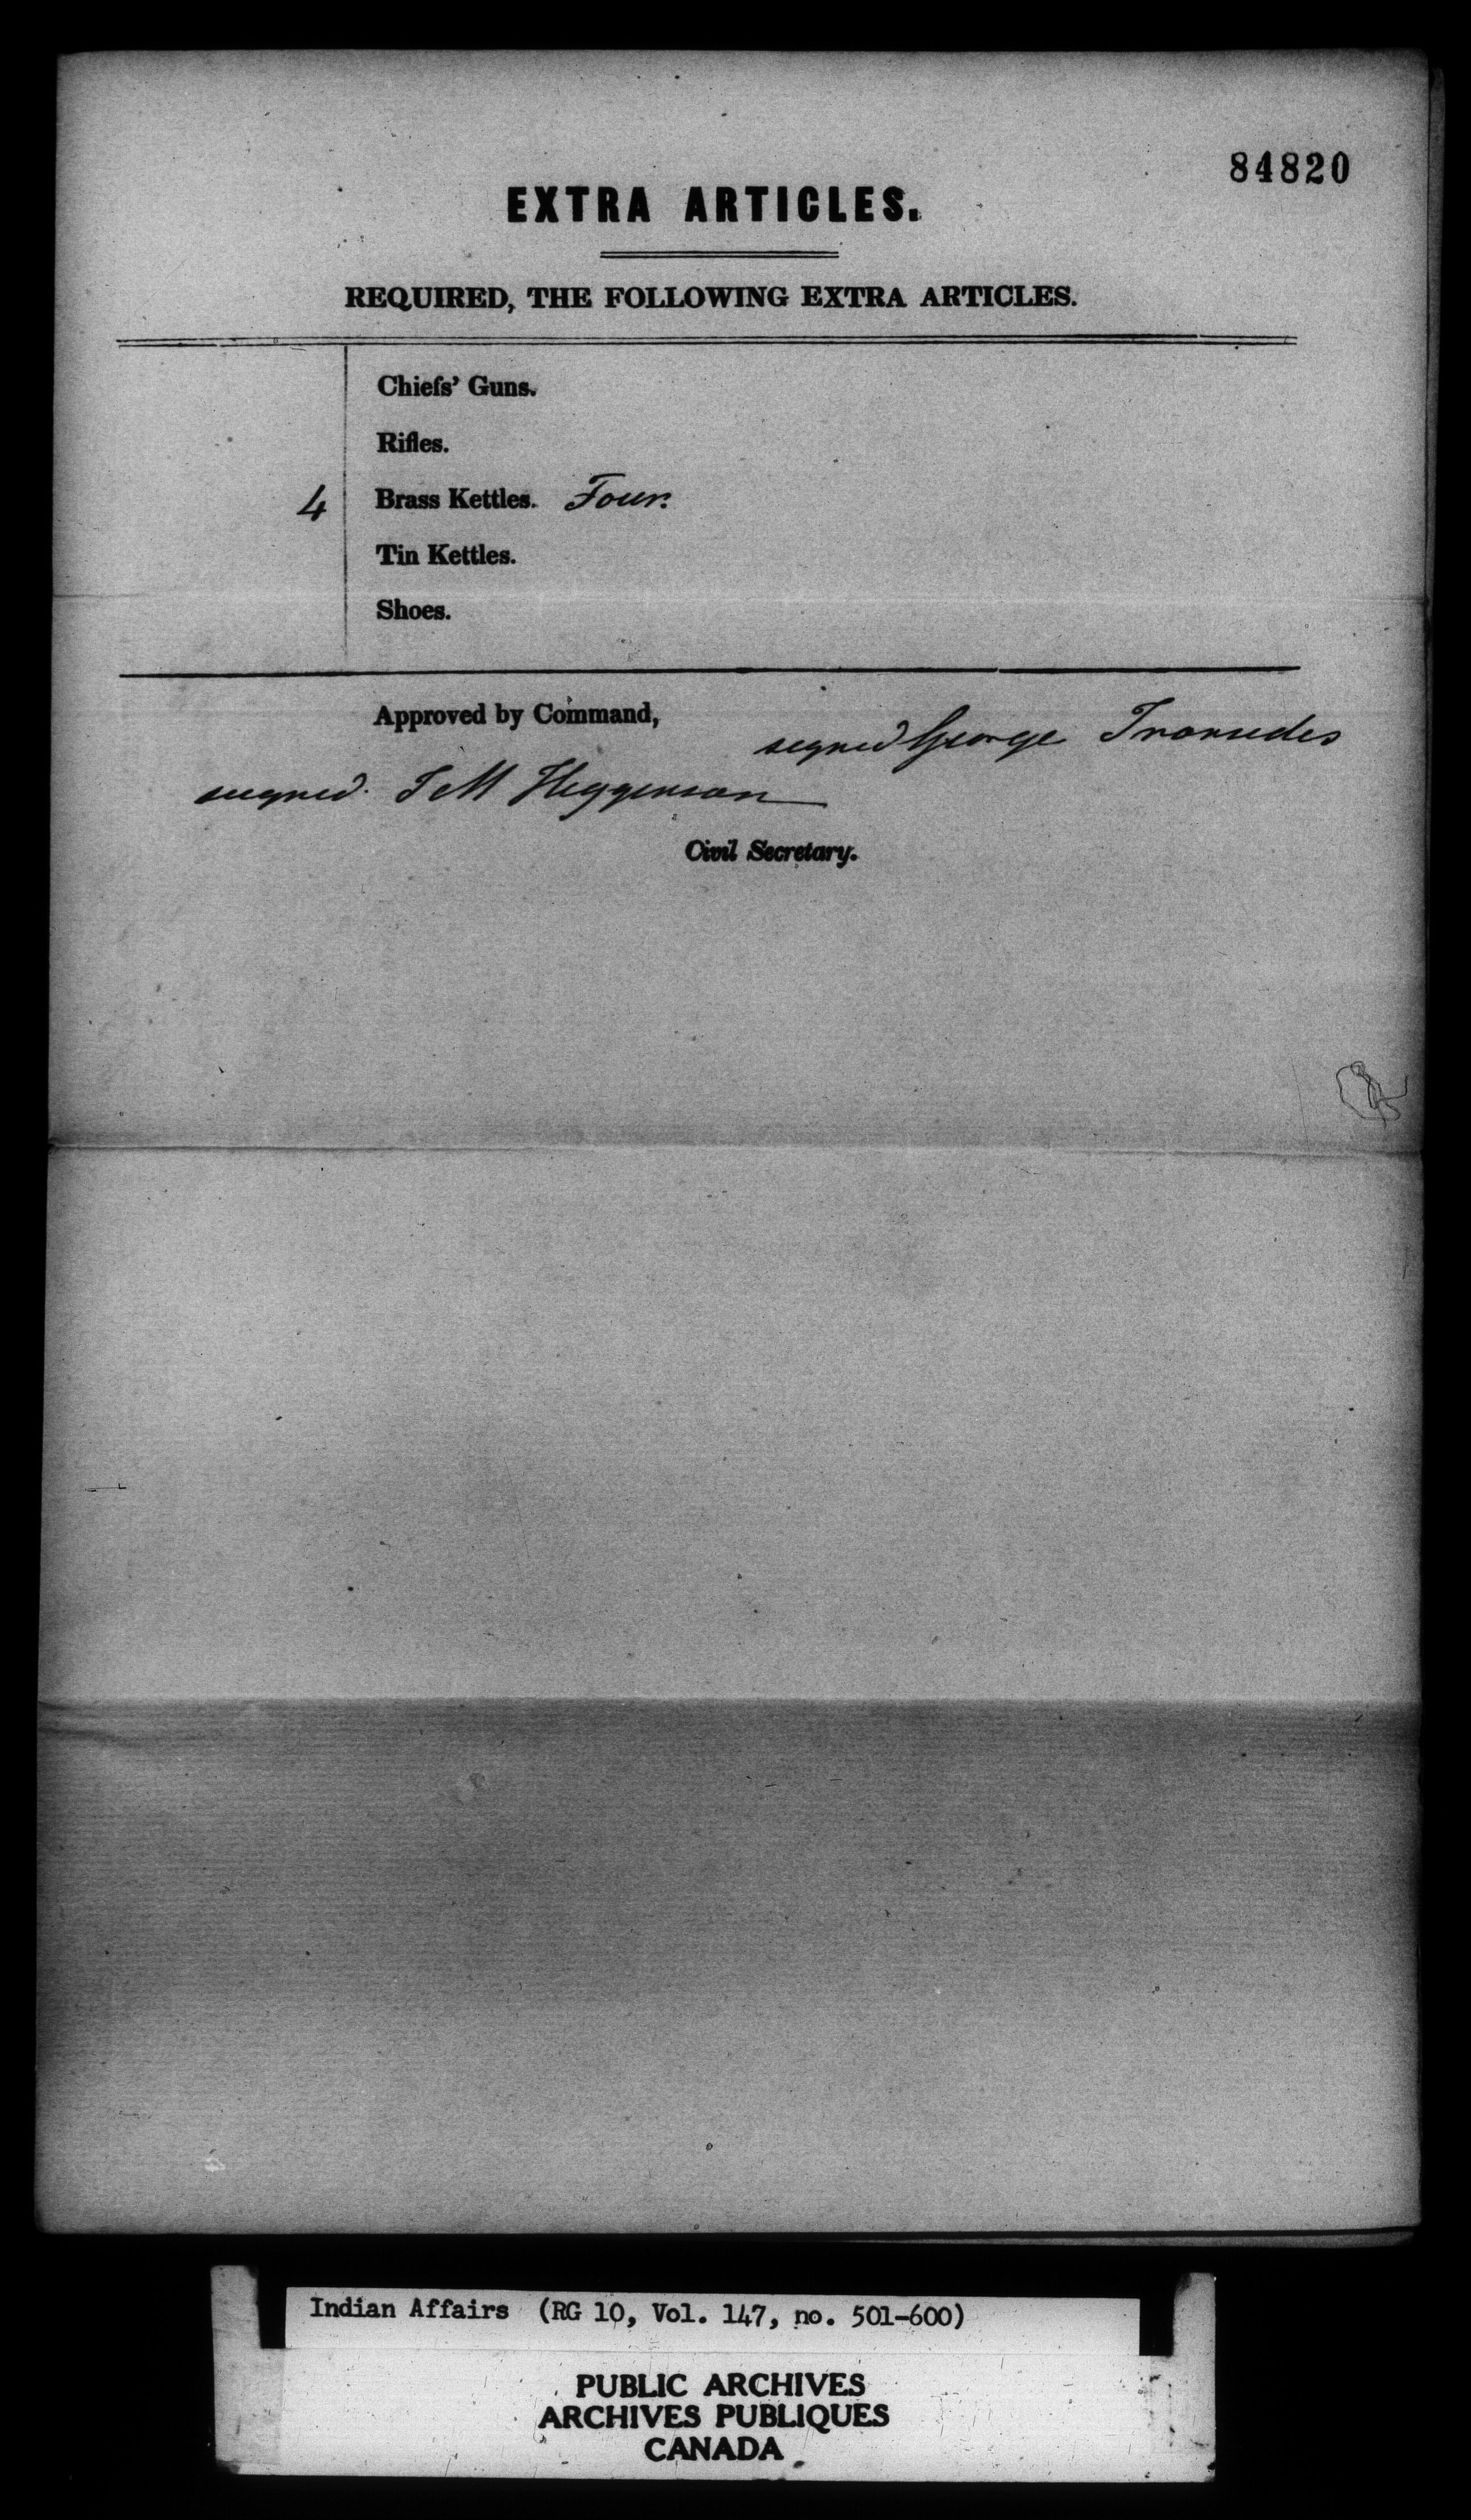 84820
EXTRA ARTICLES.
REQUIRED, THE FOLLOWING EXTRA ARTICLES.
Chiefs' Guns.
Rifles.
4 Brass Kettles. Four.
Tin Kettles.
Shoes.
Approved by Command,
signed George Ironsides
signed. J M Higginson
Civil Secretary.
Indian Affairs (RG 10, Vol. 147, no. 501-600)
PUBLIC ARCHIVES
ARCHIVES PUBLIQUES
CANADA